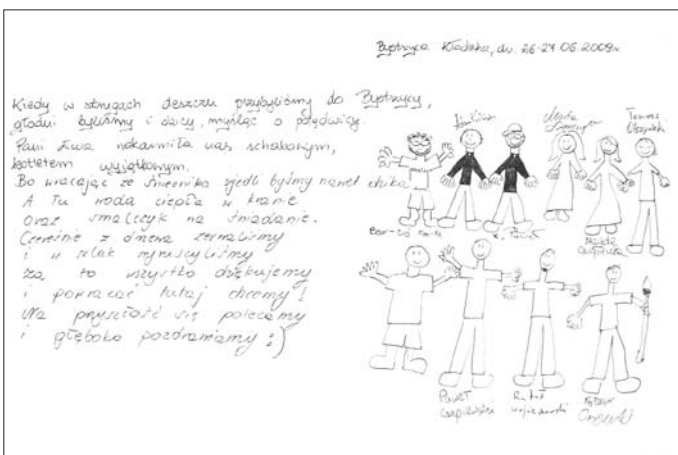 Bystrzyca Kłodzka, dn. 26-27.06.2009r.
Kiedy w strugach deszczu przybyliśmy do Bystrzycy,
głodni byliśmy i dzicy, myśląc o polędwicy.
Pani Ewa nakarmiła nas schabowym,
kotletem wyjątkowym.
Bo wracając ze Śnieżnika zjedli byśmy nawet chika
A tu woda ciepła w kranie
Oraz smalczyk na śniadanie.
Czereśnie z drzewa zerwaliśmy
i w szlak wyruszyliśmy
Za to wszystko dziękujemy
i powracać tutaj chcemy!
Na przyszłość się polecamy
i głęboko pozdrawiamy :)
Tomasz
Magda
Paweł
Czapiewski
Rafał